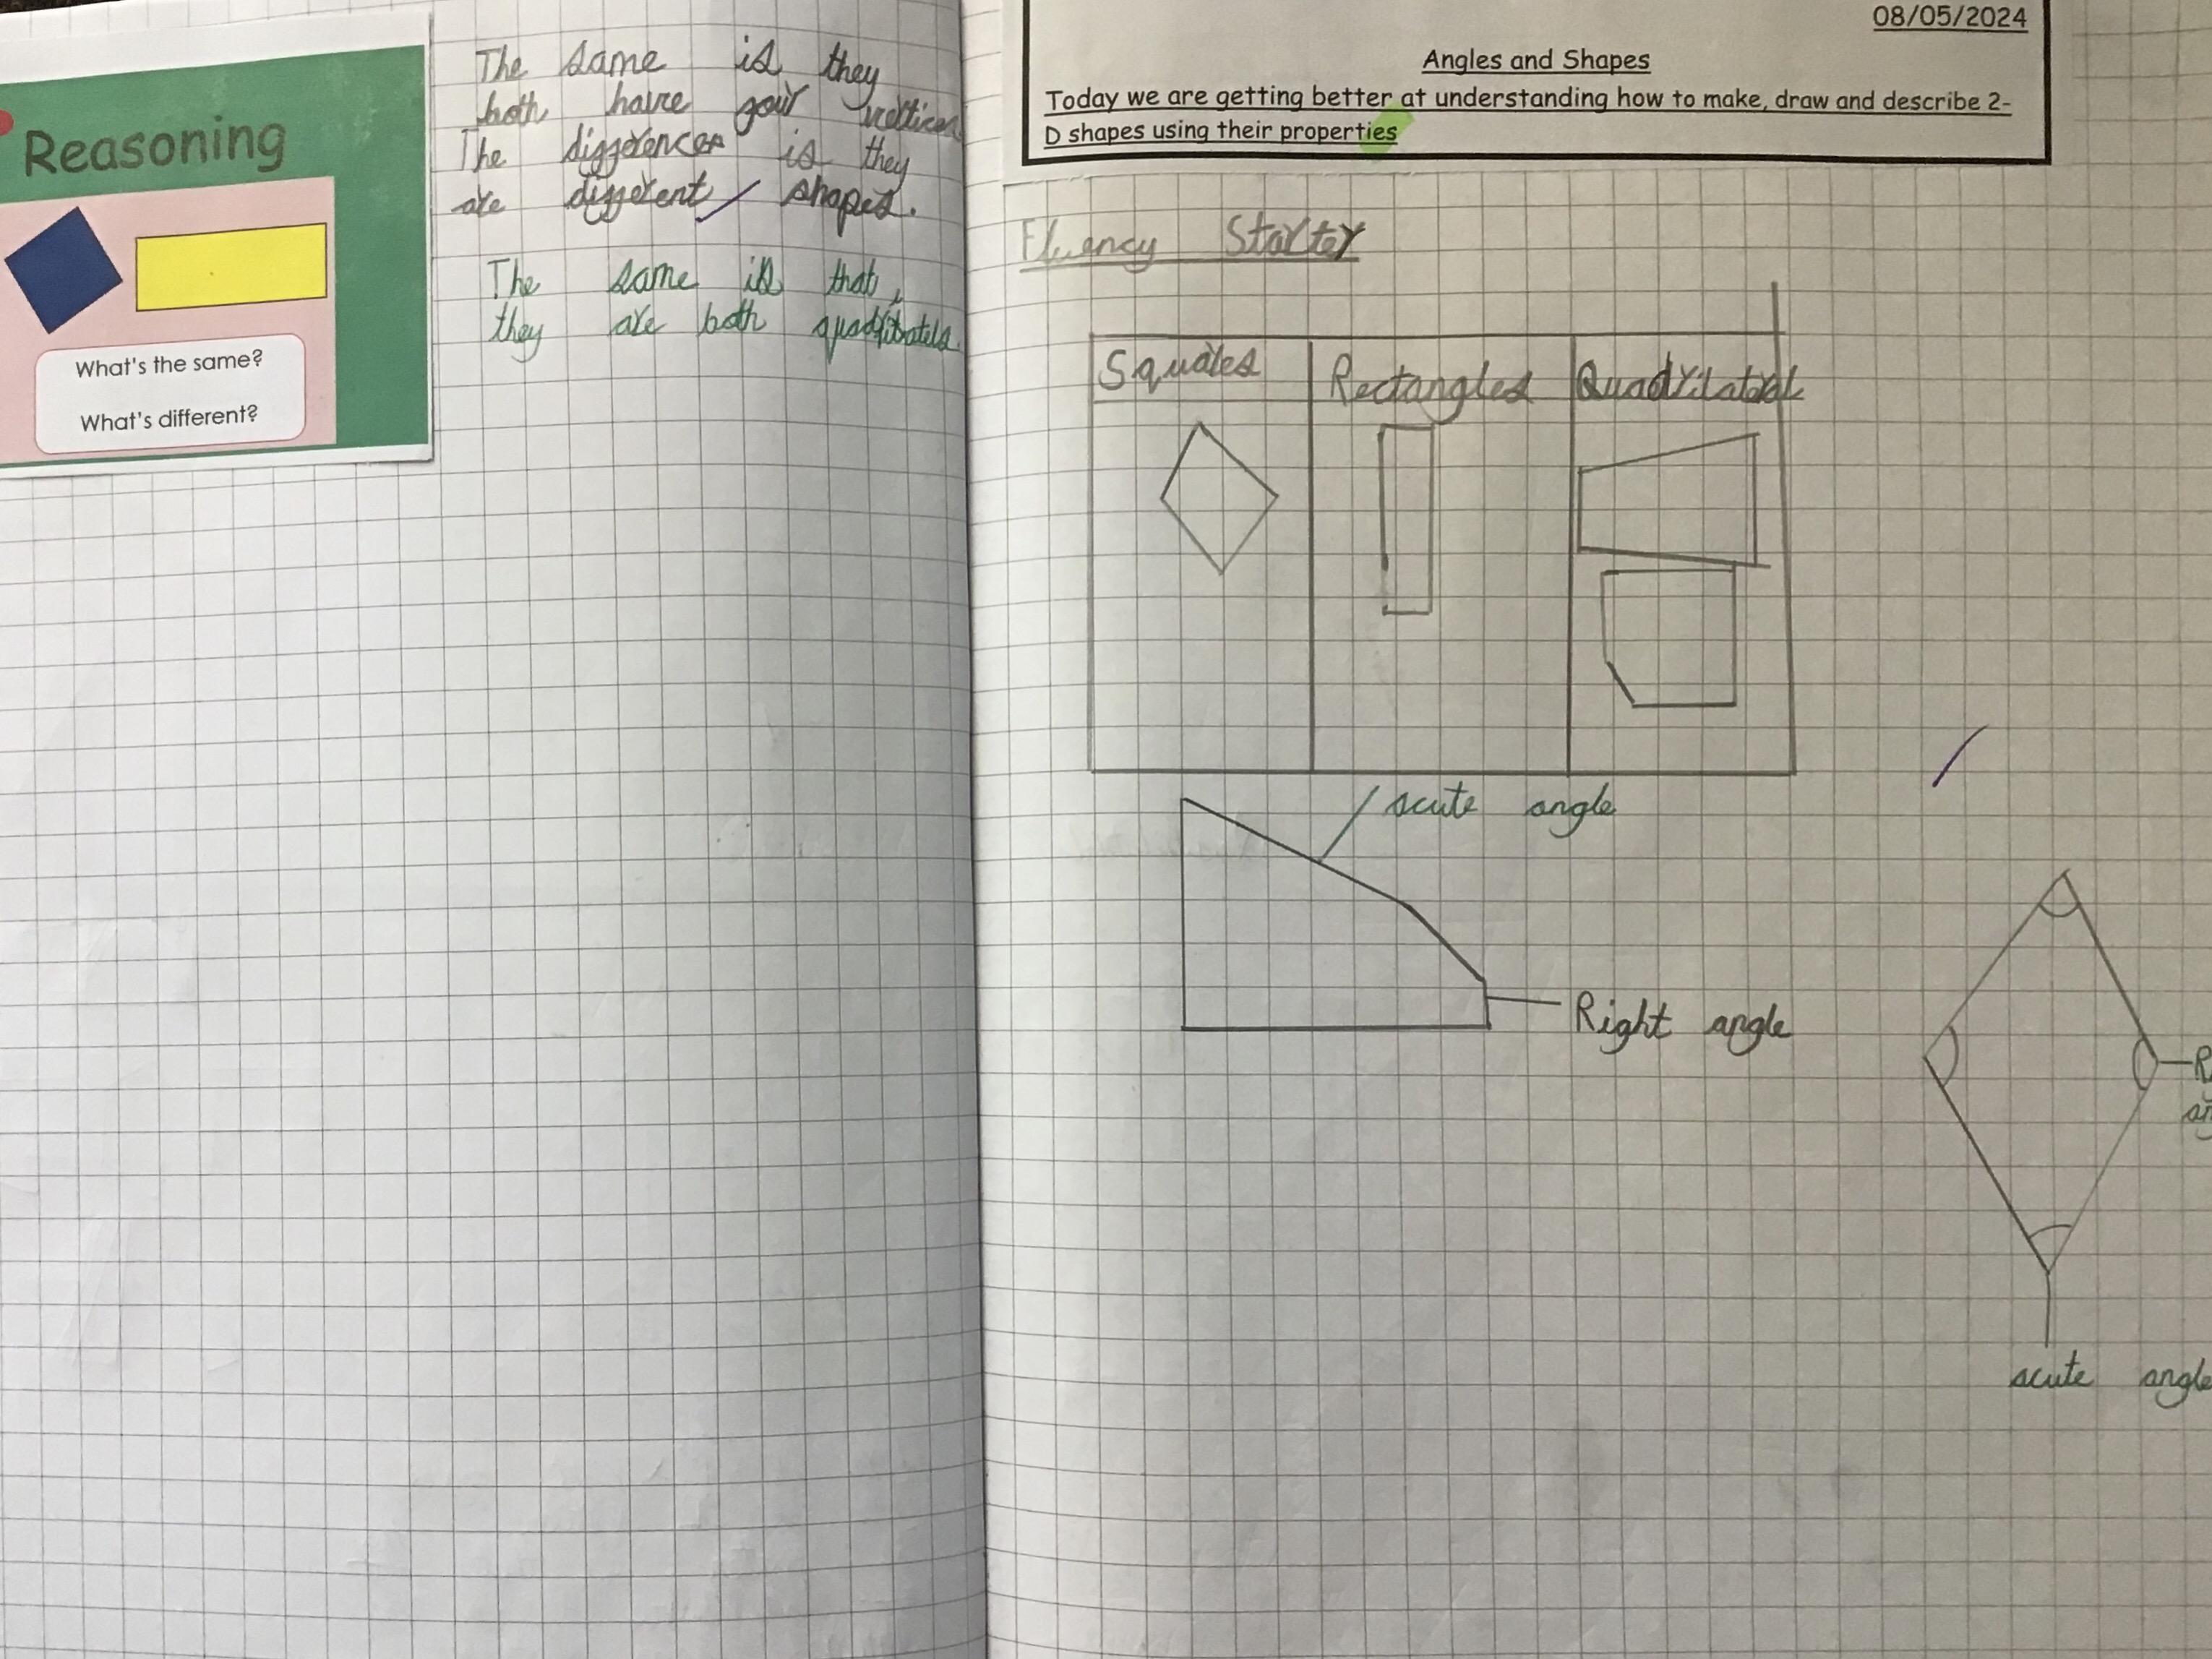 Reasoning
What's the same?
What's different?
The same is they
both have four vertices
The differences is they
are different shapes.
The same is that,
they are both
08/05/2024
Angles and Shapes
Today we are getting better at understanding how to make, draw and describe 2-
D shapes using their properties
Fluency Starter
Squares
Rectangles
acute angle
Right angle
acute angle